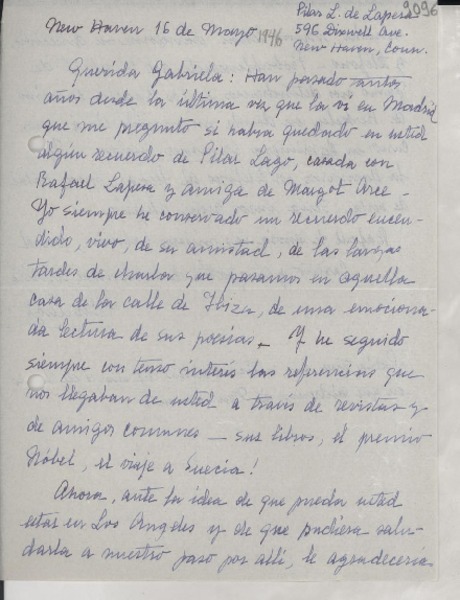 Pilar L. de Lapesa
9096
596 Dixwell Ave.
New Haven, Conn.
New Haven 16 de Mayo 1946
Querida Gabriela: Han pasado tantos
años desde la última vez que la vi en Madrid
que me pregunto si habrá quedado en usted
algún recuerdo de Pilar Lago, casada con
Rafael Lapesa y amiga de Margot Arce -
Yo siempre he conservado un recuerdo encen-
dido, vivo, de su amistad, de las largas
tardes de charla que pasamos en aquella
casa de la calle de Ibiza, de una emociona-
da lectura de sus poesías. Y he seguido
siempre con tenso interés las referencias que
nos llegaban de usted a través de revistas y
de amigos comunes — sus libros, el premio
Nóbel, el viaje a Suecia!
Ahora, ante la idea de que pueda usted
estar en Los Angeles y de que pudiera salu-
darla a nuestro paso por allí, le agradecería